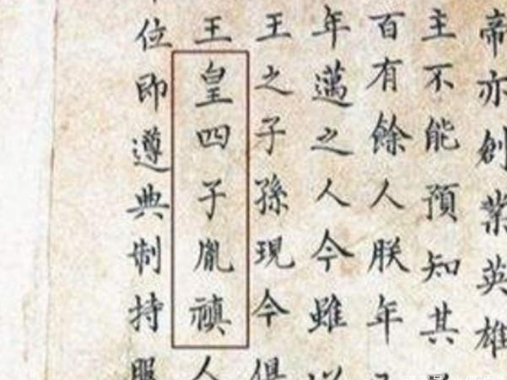 帝亦創業英雄
主不能預知其
百有餘人朕年
年邁之人今雖
王之子孫現今俱
王皇四子胤禛人
位即遵典制持服